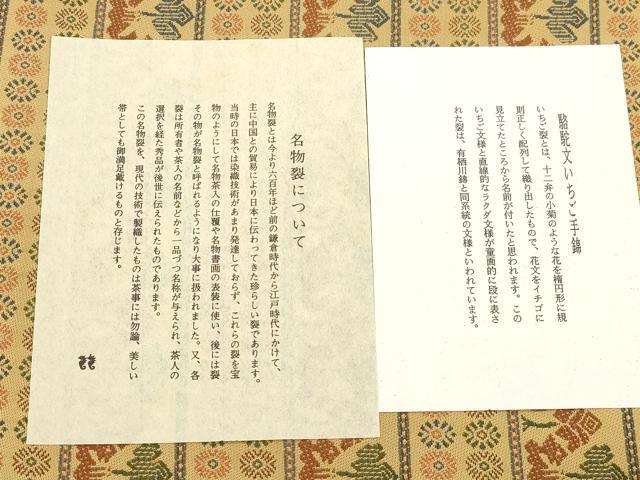 駱駝文いちご手錦
いちご裂とは、十二弁の小菊のような花を楕円形に規
則正しく配列して織り出したもので、花文をイチゴに
見立てたところから名前が付いたと思われます。この
いちご文様と直線的なラクダ文様が童画的に段に表さ
れた裂は、有栖川錦と同系統の文様といわれています。
名物裂について
名物裂とは今より六百年ほど前の鎌倉時代から江戸時代にかけて、
主に中国との貿易により日本に伝わってきた珍らしい裂であります。
当時の日本では染織技術があまり発達しておらず、これらの裂を宝
物のようにして名物茶入の仕覆や名物書画の表装に使い、後には裂
その物が名物裂と呼ばれるようになり大事に扱われました。又、各
裂は所有者や茶人の名前などから一品づつ名称が与えられ、茶人の
選択を経た秀品が後世に伝えられたものであります。
この名物裂を、現代の技術で製織したものは茶事には勿論、美しい
帯としても御満足戴けるものと存じます。